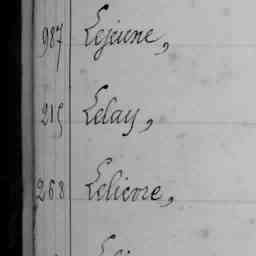 987 Lejeune,
215 Lelay,
268 Lelievre,